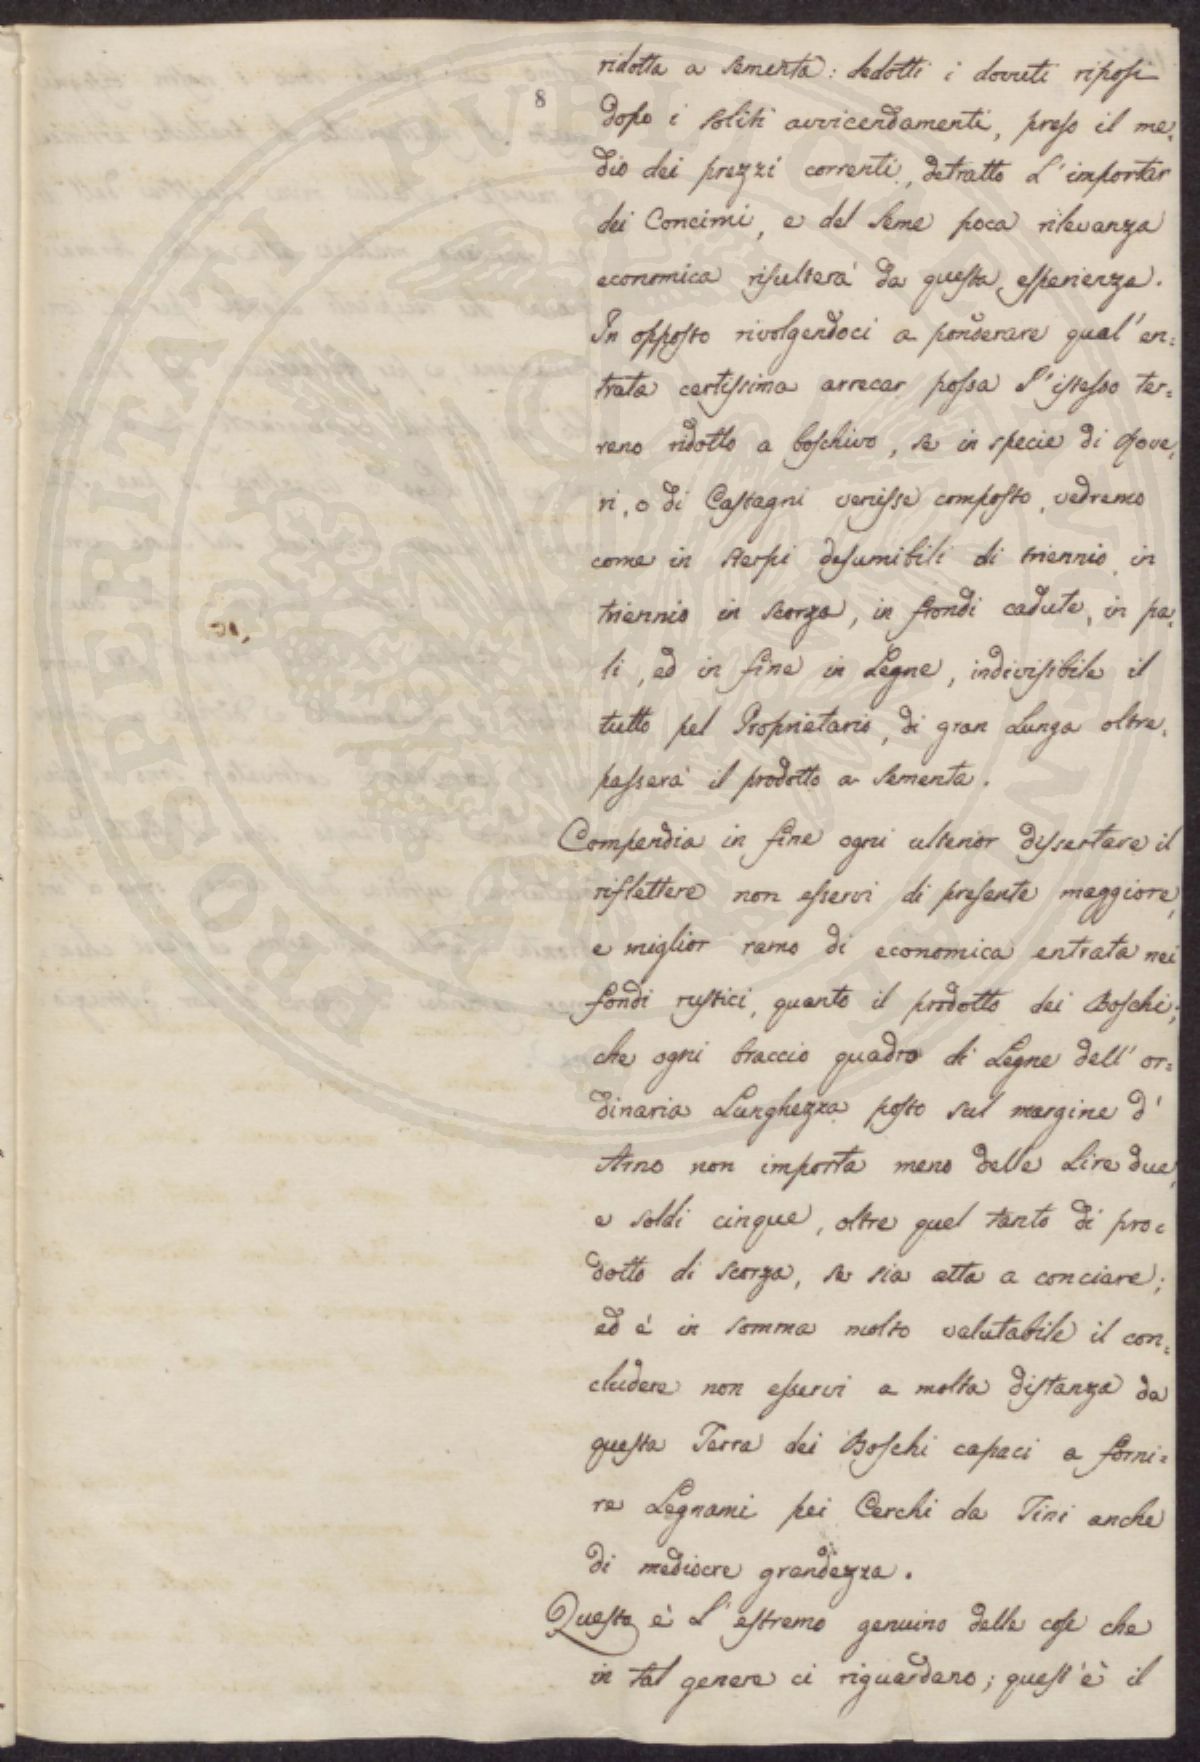 8
ridotta a sementa: dedotti i dovuti riposi
dopo i soliti avvicendamenti, preso il me=
dio dei prezzi correnti, detratto l'importar
dei Concimi, e del seme poca rilevanza
economica risulterà da questa esperienza.
In opposto rivolgendoci a ponderare qual'en=
trata certissima arrecar possa l'istesso ter=
reno ridotto a boschivo, se in specie di Rove,
ri, o di Castagni venisse composto, vedremo
come in sterpi desumibili di triennio in
triennio in scorza, in frondi cadute, in pa,
li, ed in fine in Legne, indivisibile il
tutto pel Proprietario, di gran lunga oltre,
passerà il prodotto a sementa.
Compendia in fine ogni ulterior dissertare il
riflettere non esservi di presente maggiore,
e miglior ramo di economica entrata nei
fondi rustici, quanto il prodotto dei Boschi;
che ogni braccio quadro di Legne dell'or=
dinaria Lunghezza posto sul margine d'
Arno non importa meno delle Lire due,
e soldi cinque, oltre quel tanto di pro=
dotto di scorza, se sia atta a conciare;
ed è in somma molto valutabile il con=
cludere non esservi a molta distanza da
questa Terra dei Boschi capaci a forni=
re Legnami pei Cerchi da Tini anche
di mediocre grandezza.
Questo è l'estremo genuino delle cose che
in tal genere ci riguardano; quest'è il
PROSPERITATI PUBLICAE